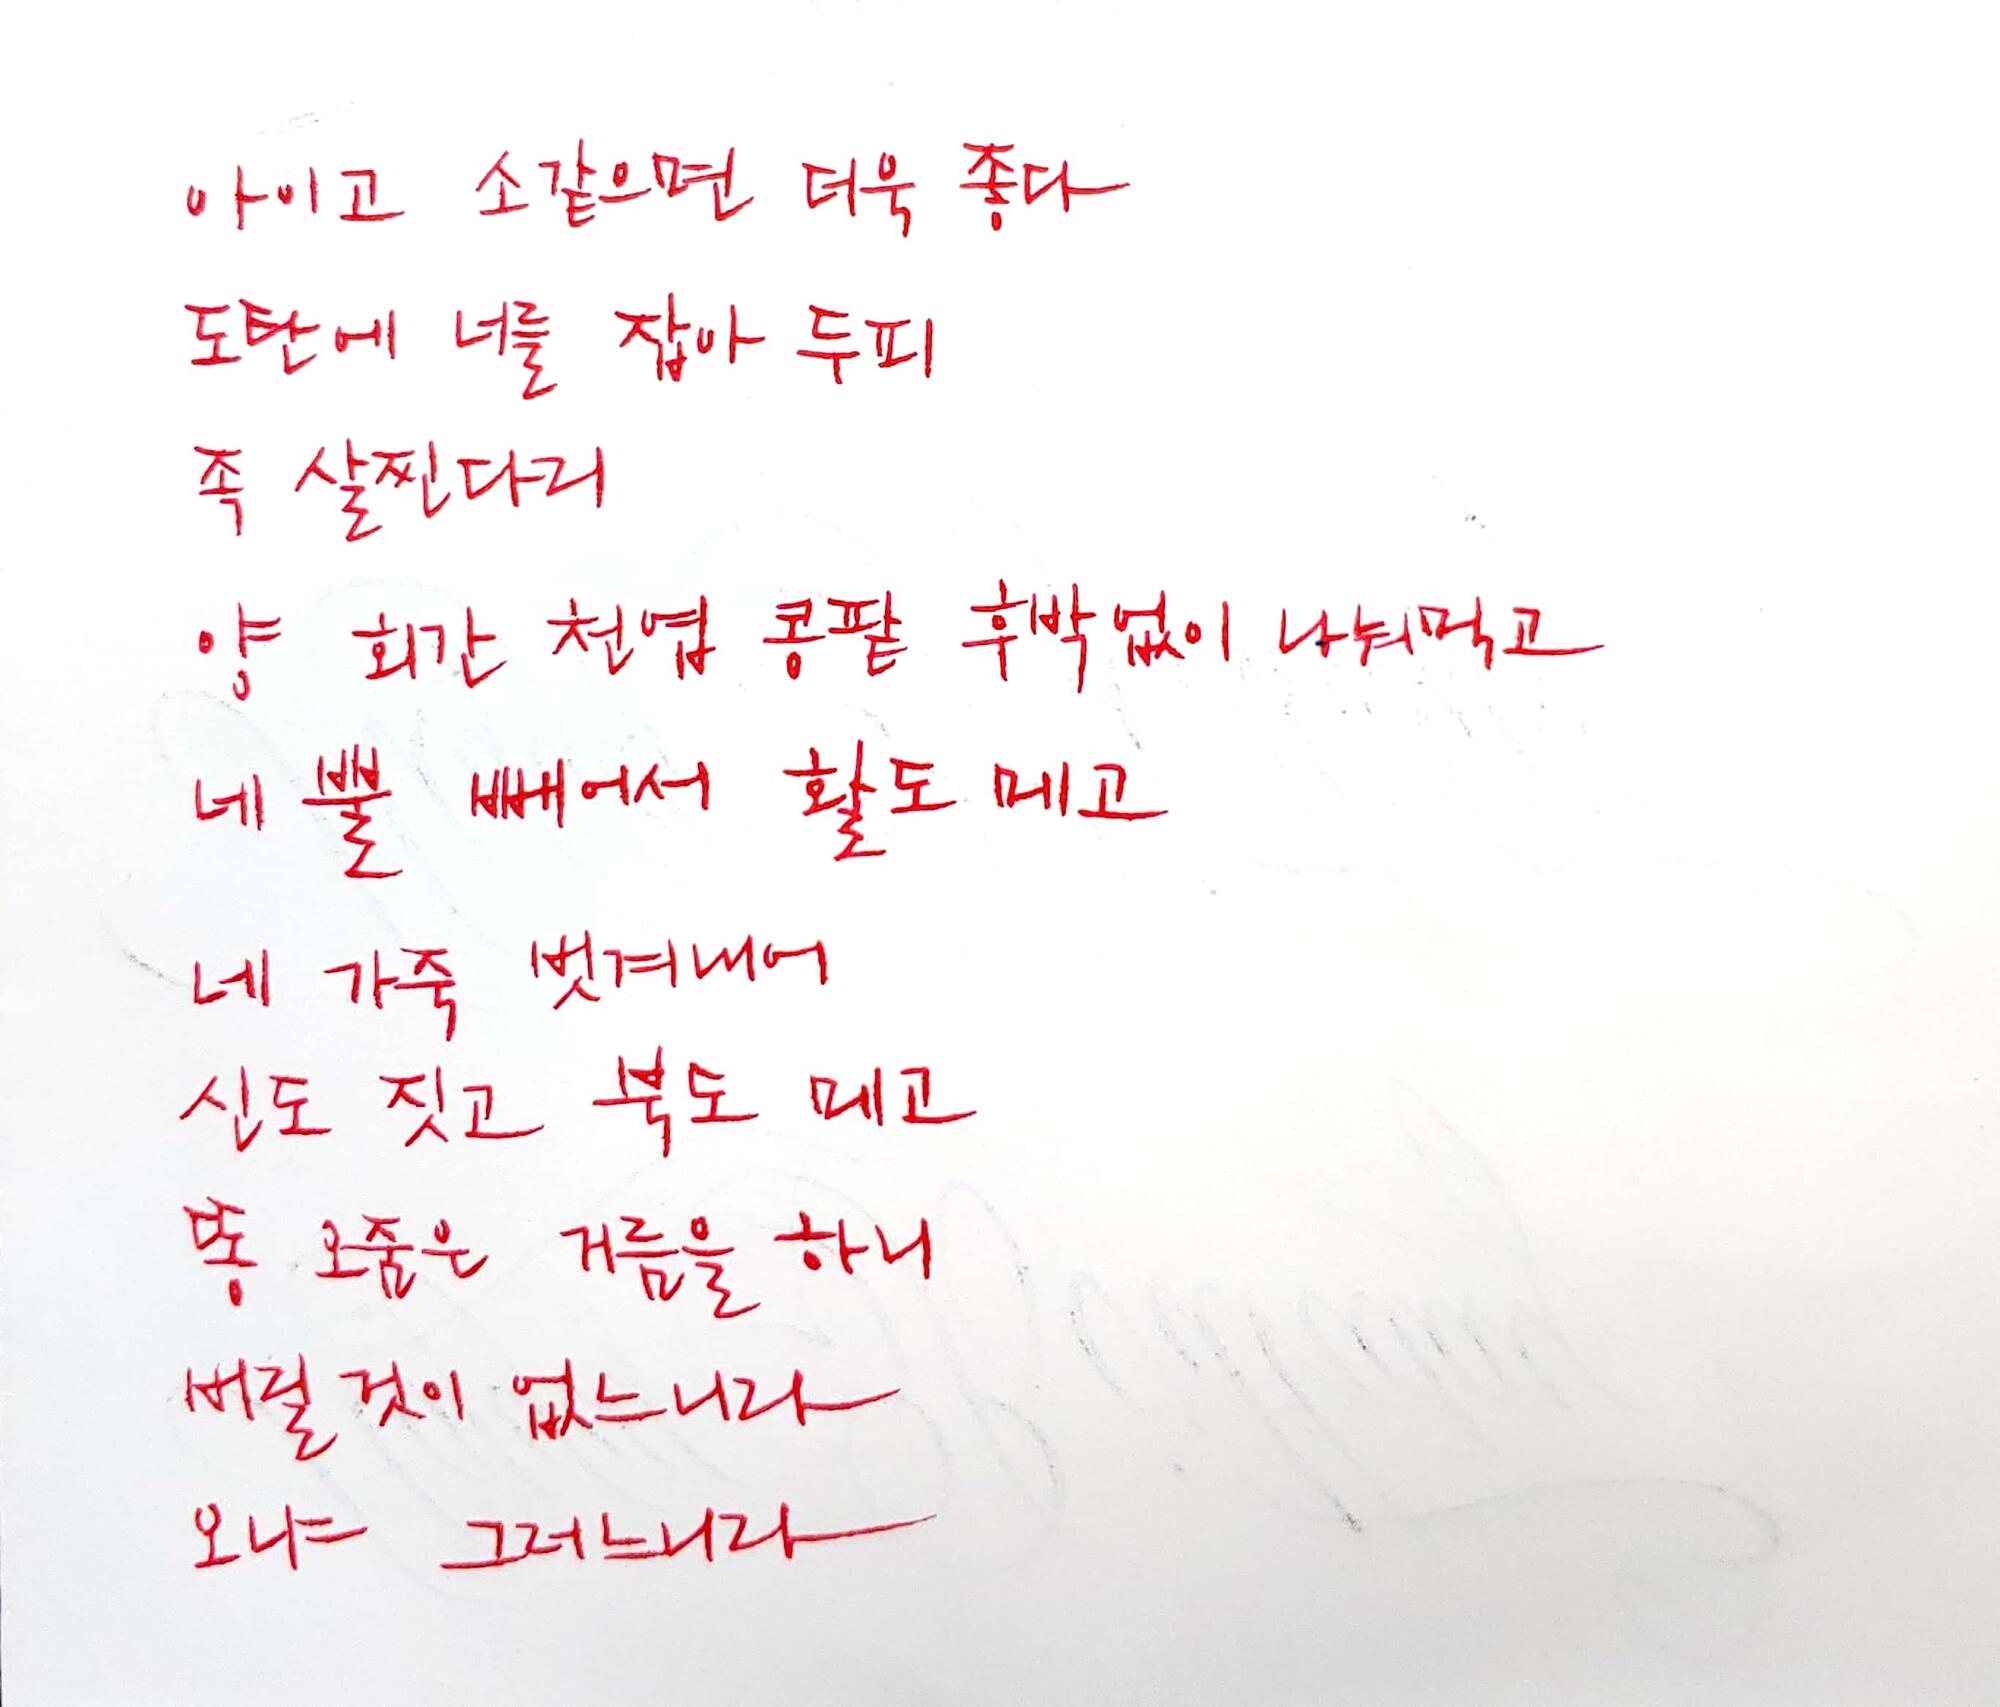 아이고 소같으면 더욱 좋다
도탄에 너를 잡아 두피
족 살찐다리
양 회간 천엽 콩팥 후박없이 나눠먹고
네 뿔 빼어서 활도 메고
네 가죽 벗겨내어
신도 짓고 북도 메고
똥 오줌은 거름을 하니
버릴 것이 없느니라
오냐 그러느니라